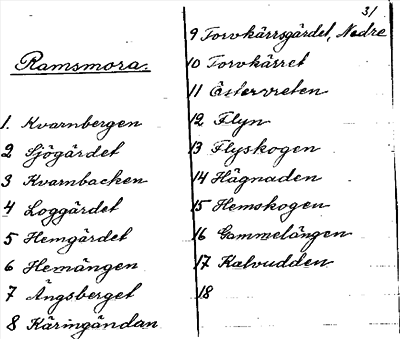 31
Ramsmora.
1. Kvarnbergen
2 Sjögärdet
3 Kvarnbacken
4 Loggärdet
5 Hemgärdet
6 Hemängen
7 Ängsberget
8 Käringändan
9 Torvkärrsgärdet, Nedre
10 Torvkärret
11 Östervreten
12 Flyn
13 Flyskogen
14 Hägnaden
15 Hemskogen
16 Gammelängen
17 Kalvudden
18